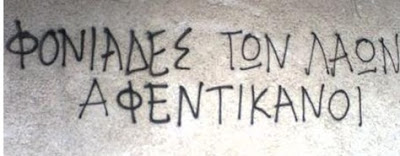 ΦΟΝΙΑΔΕΣ ΤΩΝ ΛΑΩΝ
ΑΦΕΝΤΙΚΑΝΟΙ